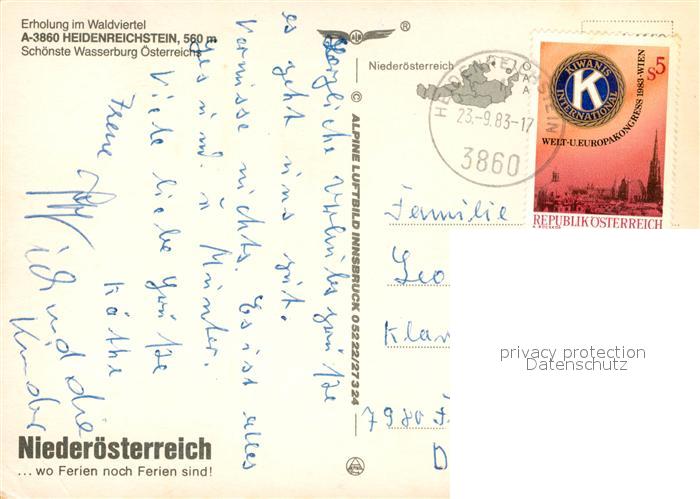 Erholung im Waldviertel
A-3860 HEIDENREICHSTEIN, 560 m
Schönste Wasserburg Österreichs
Herzliche Urlaubsgrüße
es geht uns gut.
Vermisse nichts. Es ist alles
gesund u. munter.
Viele liebe Grüße
Käthe
und die
Kinder
Niederösterreich
... wo Ferien noch Ferien sind!
© ALPINE LUFTBILD INNSBRUCK 05222/27324
®
Niederösterreich
HEIDENREICHSTEIN
23.-9.83-17
3860
KIWANIS
INTERNATIONAL
K
S5
WELT-U.EUROPAKONGRESS 1983-WIEN
REPUBLIK ÖSTERREICH
Familie
Leo
Klan
7980
D
privacy protection
Datenschutz